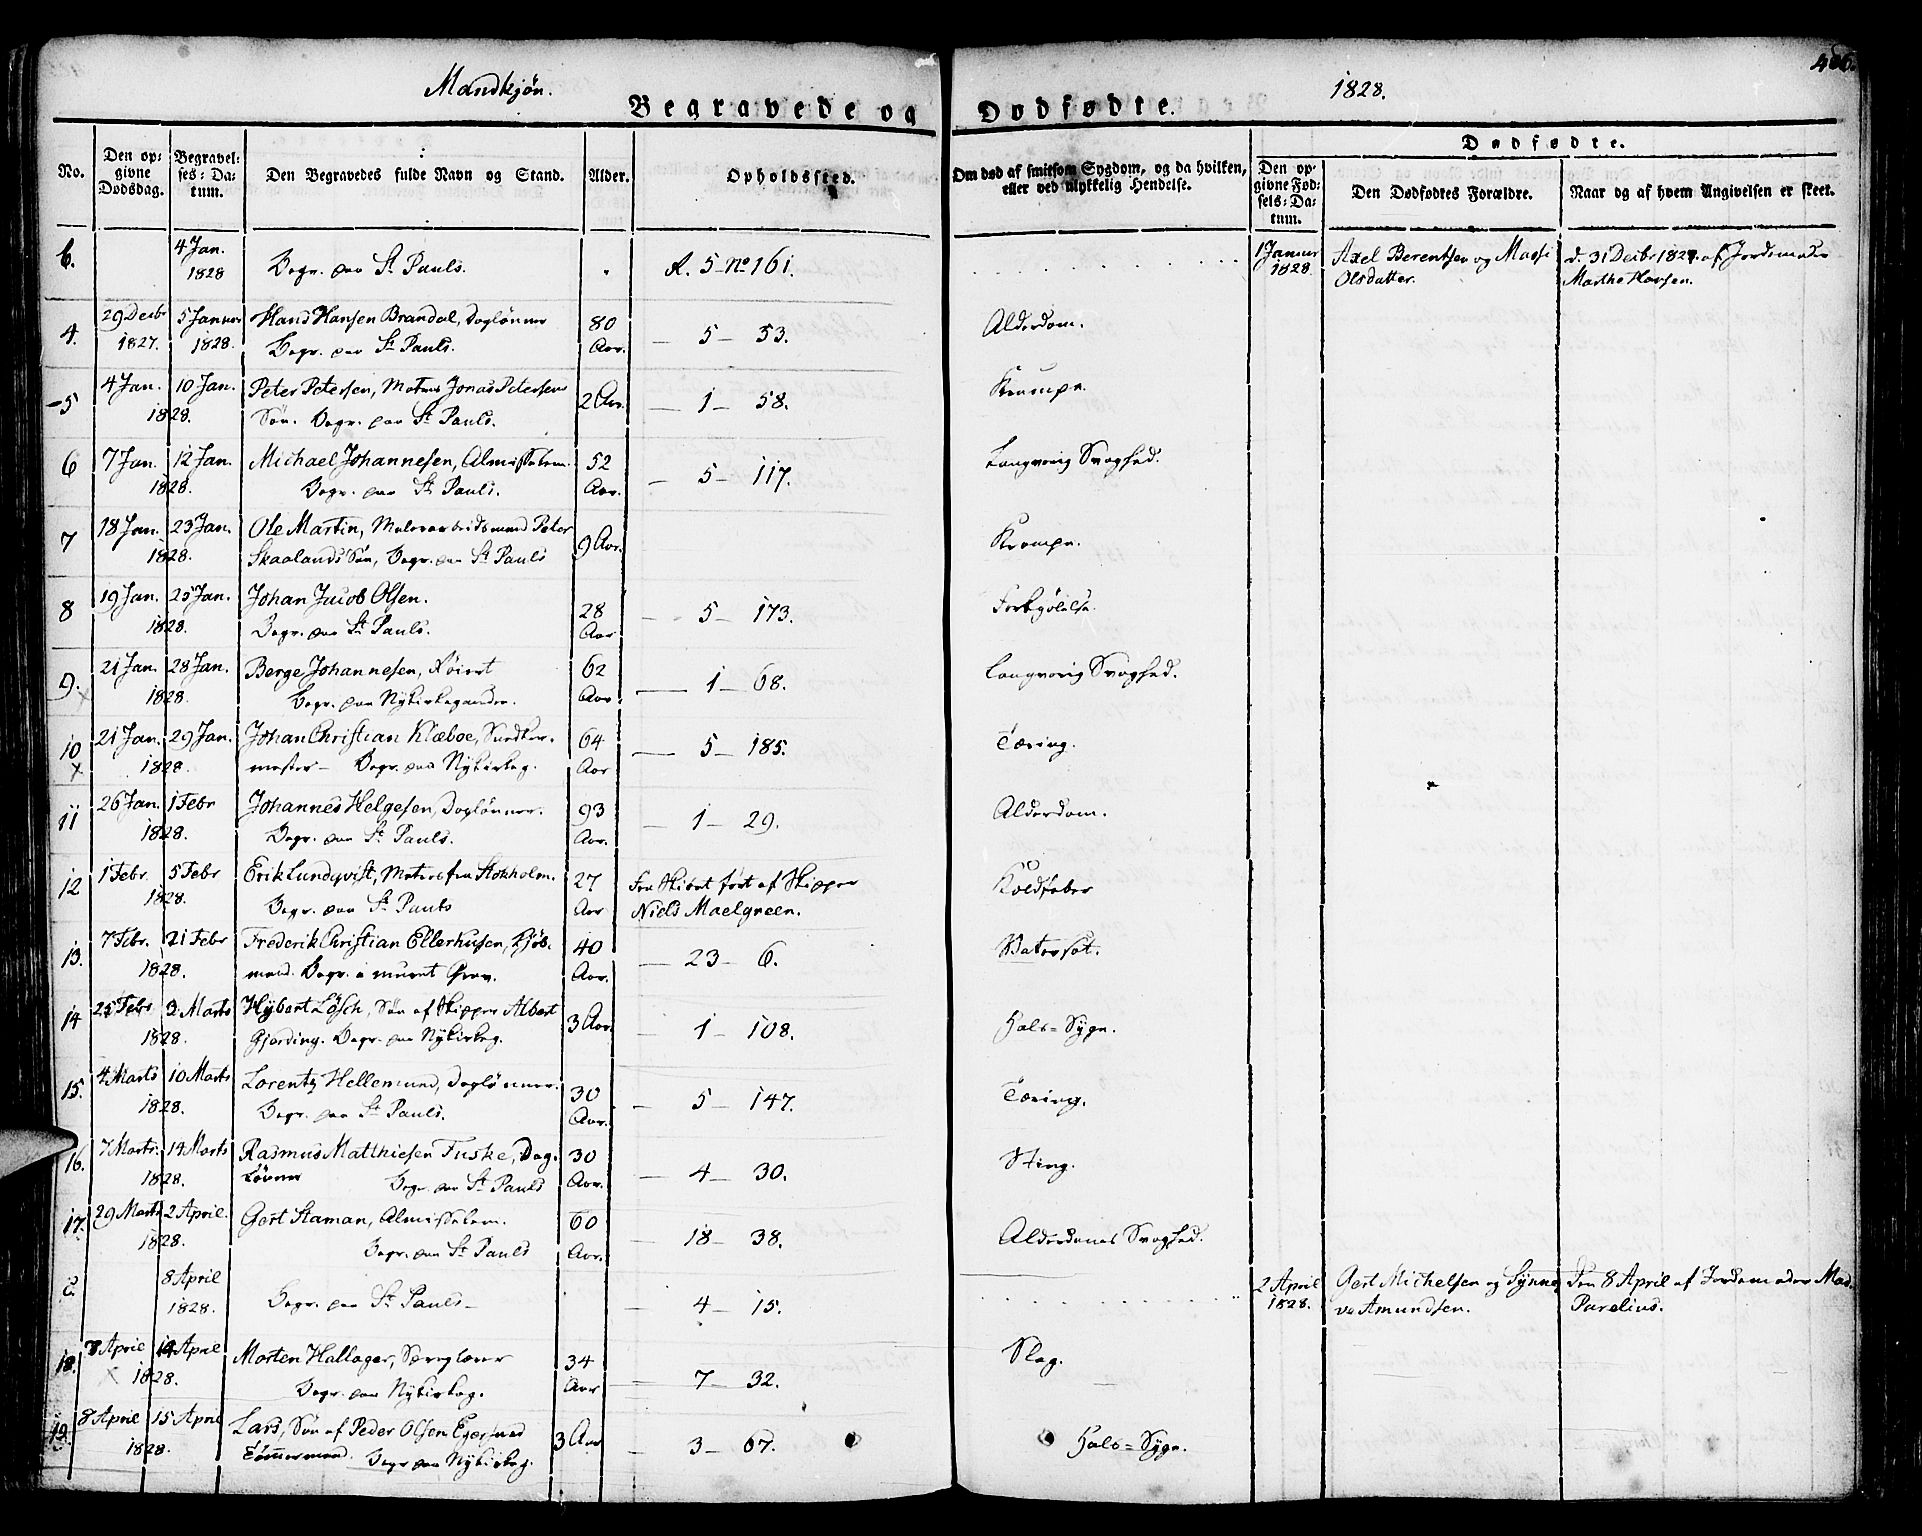 Mandkjøn.
Begravede og Dødfødte.
1828.
No.
Den opgivne Dødsdag.
Begravelses-Datum.
Den Begravedes fulde Navn og Stand.
Alder.
Opholdssted.
Om død af smitsom Sygdom, og da hvilken, eller ved ulykkelig Hendelse.
Dødfødte.
Den opgivne Fødsels-Datum.
Den Dødfødtes Forældre.
Naar og af hvem Angivelsen er skeet.
b. 4 Jan. 1828 Begr. paa St Pauls. R. 5 No 161. 1 Januar 1828. Axel Berentsen og Massi Olsdatter. d. 31 Decbr 1827. af Jordemoder Marthe Hansen.
4. 29 Decbr 1827. 5 Januar 1828. Hans Hansen Brandal, Daglønner Begr. paa St Pauls. 80 Aar. — 5 — 53. Alderdom.
5 4 Jan. 10 Jan. 1828. Peter Petersen, Matros Jonas Petersens Søn. Begr. paa St Pauls. 2 Aar. — 1 — 58. Krampe.
6 7 Jan. 12 Jan. 1828. Michael Johannesen, Almisselem. Begr. paa St Pauls. 52 Aar. — 5 — 117. Langvarig Svaghed.
7 18 Jan. 23 Jan. 1828. Ole Martin, Peter Skaalands Søn, Begr. paa St Pauls 9 Aar. Krampe.
8 19 Jan. 25 Jan. 1828. Johan Jacob Olsen. Begr. paa St Pauls. 28 Aar — 5 — 173. Forkjølelse.
9. 21 Jan. 28 Jan. 1828. Berge Johannesen, Begr. paa Nykirkegaarden. 62 Aar — 1 — 68. Langvarig Svaghed.
10 21 Jan. 29 Jan. 1828. Johan Christian Klæboe, Snedkermester — Begr. paa Nykirkeg. 64 Aar — 5 — 185. Tæring.
11 26 Jan. 1 Febr 1828. Johannes Helgesen, Daglønner. Begr. paa St Pauls. 93 Aar. — 1 — 29. Alderdom.
12 1 Febr. 5 Febr 1828. Erik Lundqvist, Matros fra Stokholm. Begr. paa St Pauls 27 Aar Fra Skibet ført af Skipper Niels Maelgreen. Koldfeber
13. 7 Febr. 21 Febr 1828. Frederik Christian Ellerhusen, Kjøbmand. Begr. i muret Grav. 40 Aar. — 23 — 6. Vatersot.
14 25 Febr 3 Marts 1828. Hybert Lösch, Søn af Skipper Albert Gjerding. Begr. paa Nykirkeg. 3 Aar. — 1 — 108. Hals-Syge.
15. 4 Marts 10 Marts 1828. Lorentz Hellemund, Daglønner. Begr. paa St Pauls. 30 Aar. — 5 — 147. Tæring.
16. 7 Marts. 14 Marts 1828. Rasmus Matthiesen Fuske, Dagløner Begr. paa St Pauls 30 Aar. — 4 — 30. Sting.
17. 29 Marts 2 April. 1828. Gert Staman, Almisselem. Begr. paa St Pauls 60 Aar. — 18 — 38. Alderdoms Svaghed.
c. 8 April 1828. Begr. paa St Pauls — — 4 — 15. 2 April 1828. Gert Michelsen og Synneve Amundsen. Den 8 April af Jordemoder Mad. Parelius.
18. 8 April 14 April 1828. Morten Hallager, Begr. paa Nykirkeg. 34 Aar — 7 — 32. Slag.
19. 8 April 15 April 1828. Lars, Søn af Peder Olsen Egersund Tømmermand. Begr paa Nykirkeg. 3 Aar — 3 — 67. Hals-Syge.